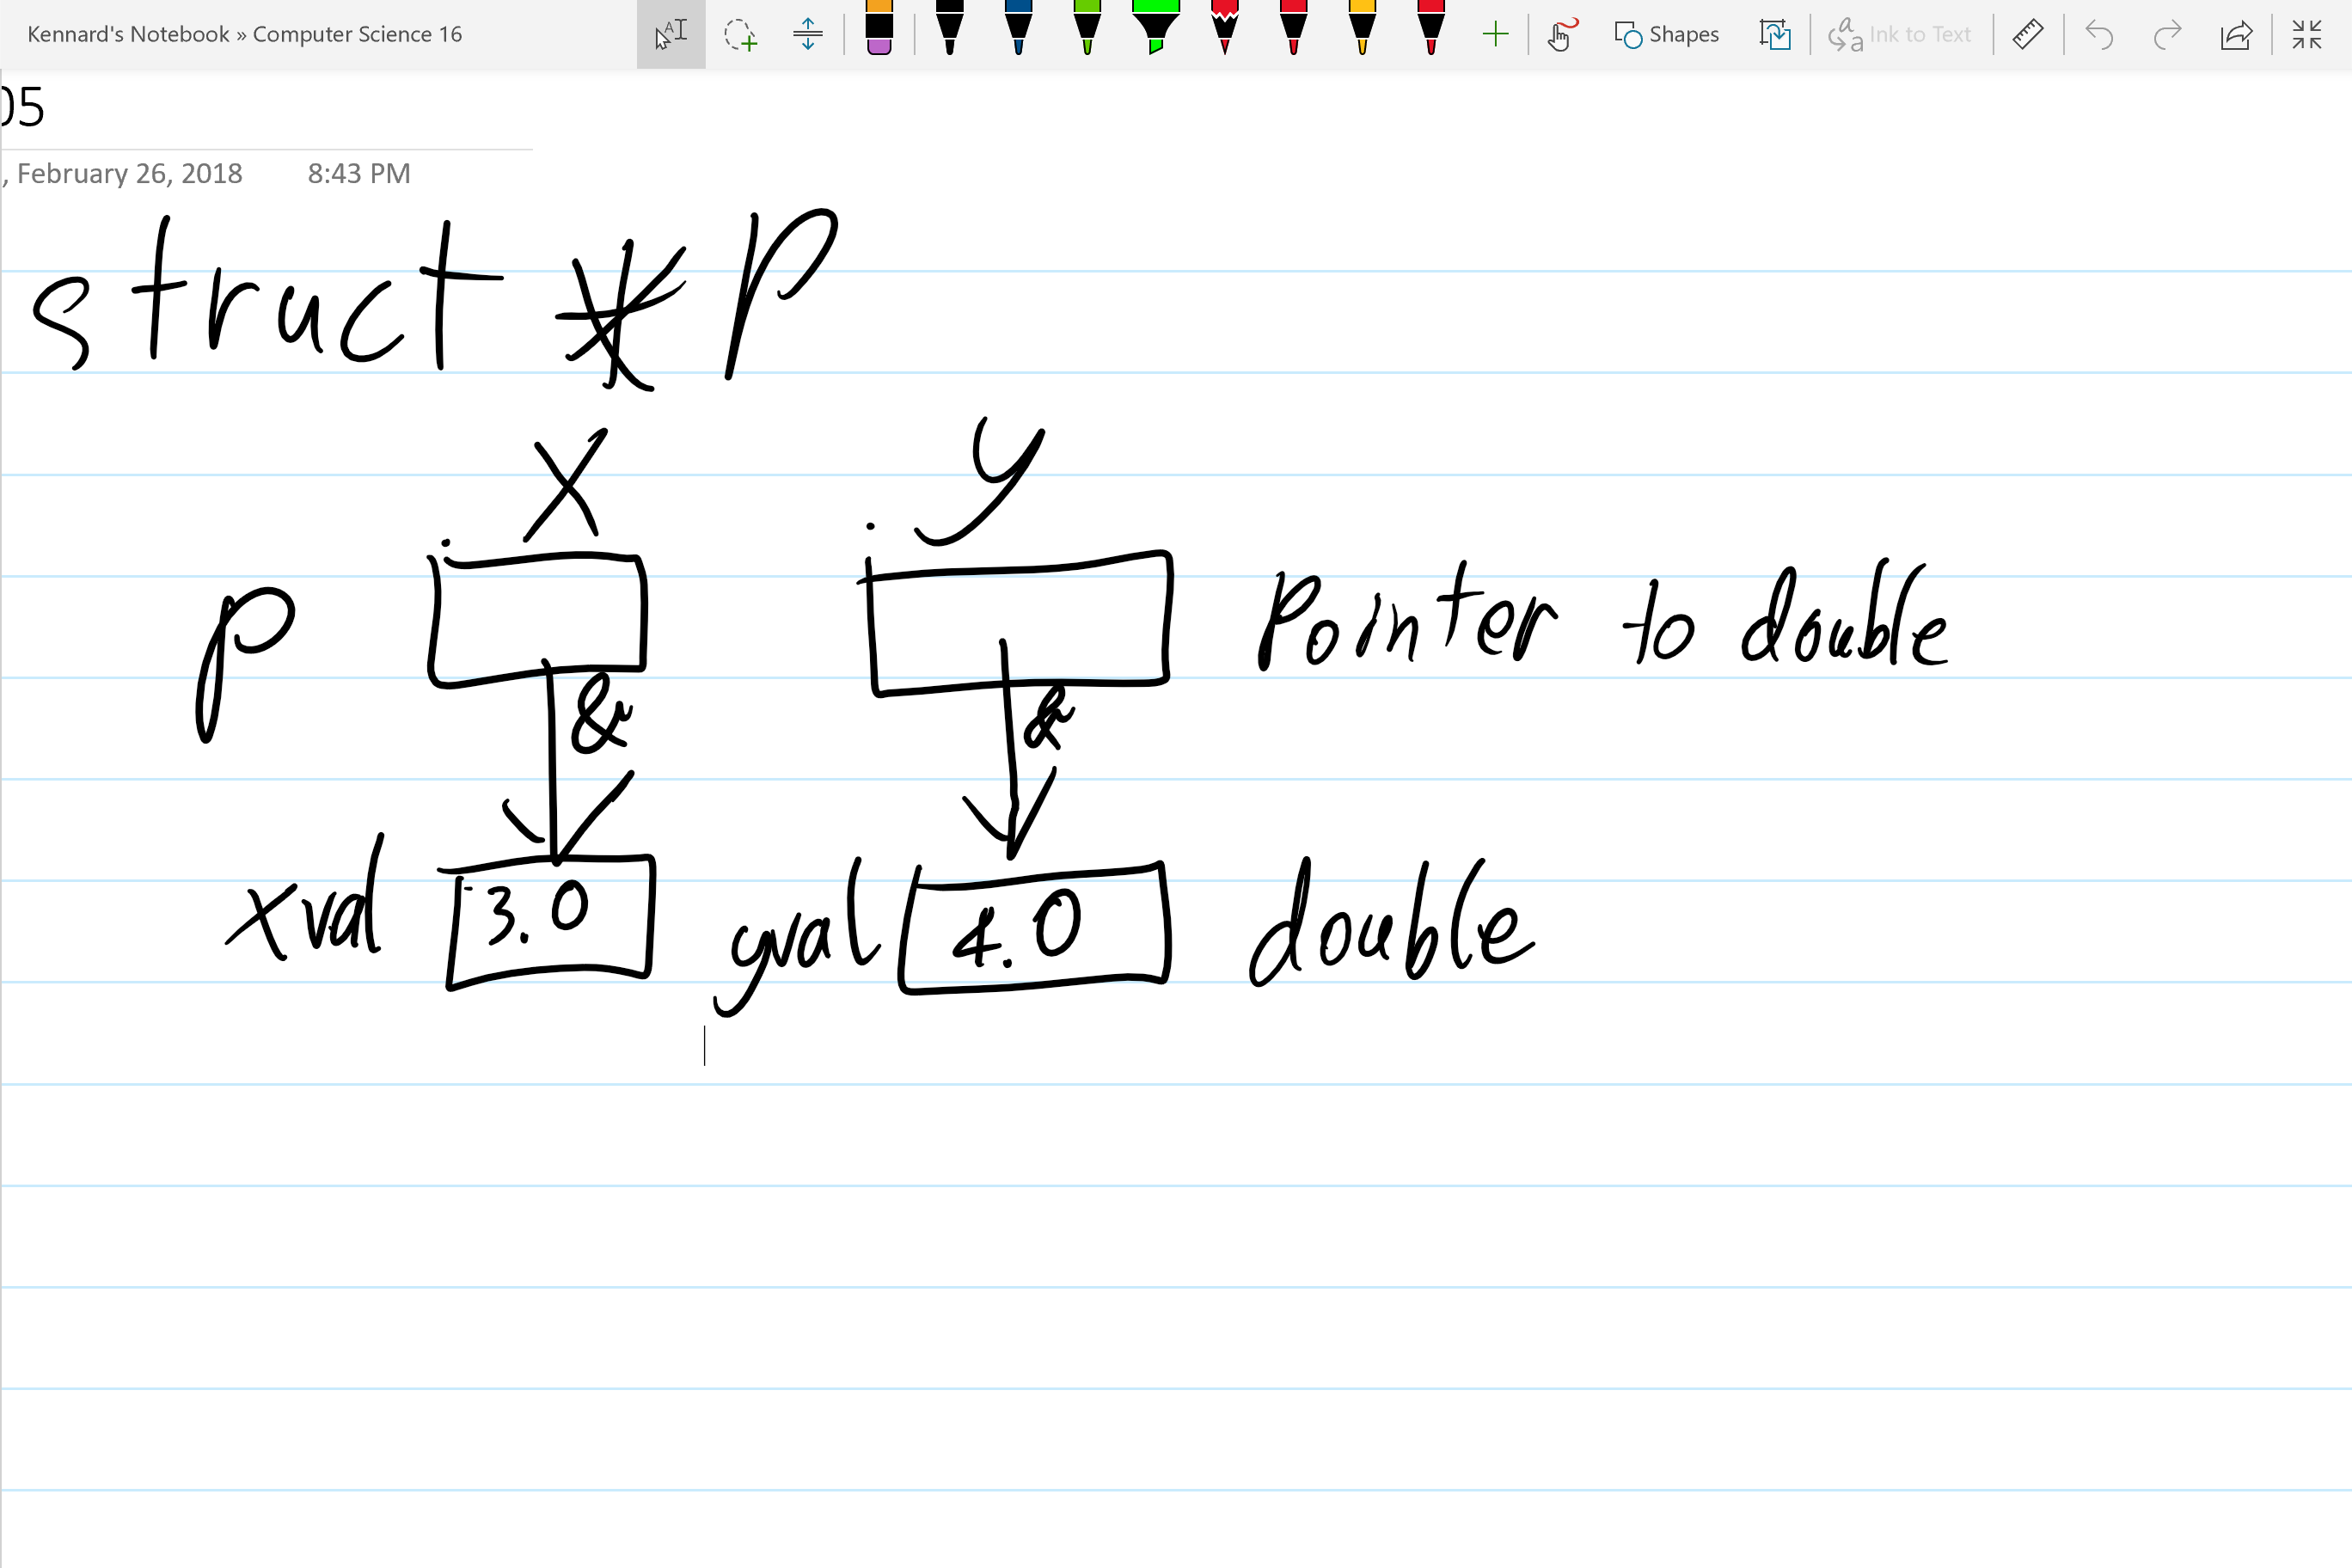 Kennard's Notebook » Computer Science 16
Shapes
Ink to Text
05
, February 26, 2018 8:43 PM
struct * P
x y
p Pointer to double
& &
xval 3.0 yval 4.0 double